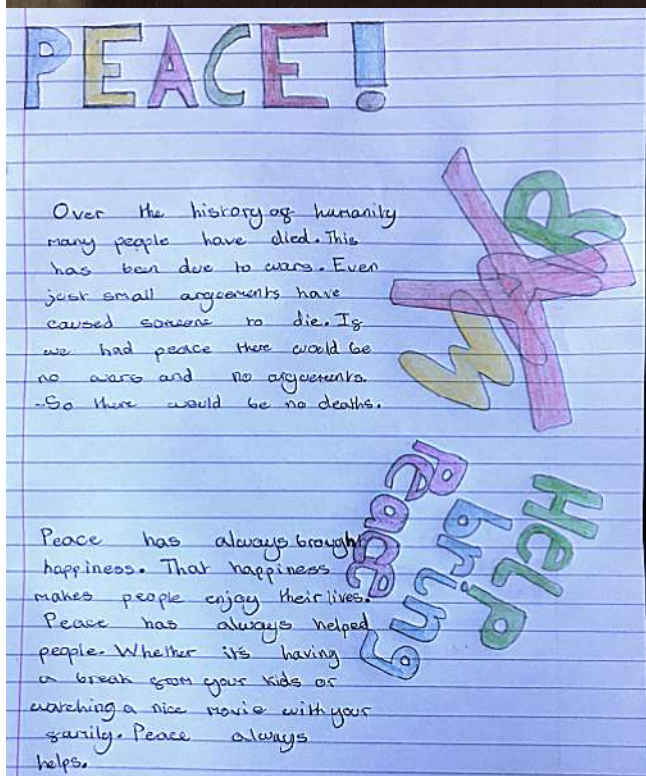 PEACE!
Over the history of humanity
many people have died. This
has been due to wars. Even
just small arguements have
caused someone to die. If
we had peace there would be
no wars and no arguements.
-So there would be no deaths.
WAR
Help
bring
Peace
Peace has always brought
happiness. That happiness
makes people enjoy their lives.
Peace has always helped
people. Whether it's having
a break from your kids or
watching a nice movie with your
family. Peace always
helps.